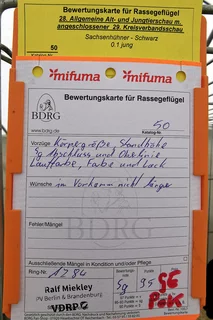 Bewertungskarte für Rassegeflügel
28. Allgemeine Alt- und Jungtierschau m.
angeschlossener 29. Kreisverbandsschau
Sachsenhühner - Schwarz
50
0.1 jung
mifuma mifuma
Bewertungskarte für Rassegeflügel
BDRG
www.bdrg.de
50
Katalog-Nr.
Vorzüge: Körpergröße, Standhöhe
sg Abschluss und Oberlinie
Lauffarbe, Farbe und Lack
Wünsche: im Vorkamm nicht länger
Fehler/Mängel
Ausschließende Mängel in Kondition und/oder Pflege
Ring-Nr. 1284
Ralf Miekley
PV Berlin & Brandenburg
VDRP
sg
95
SE